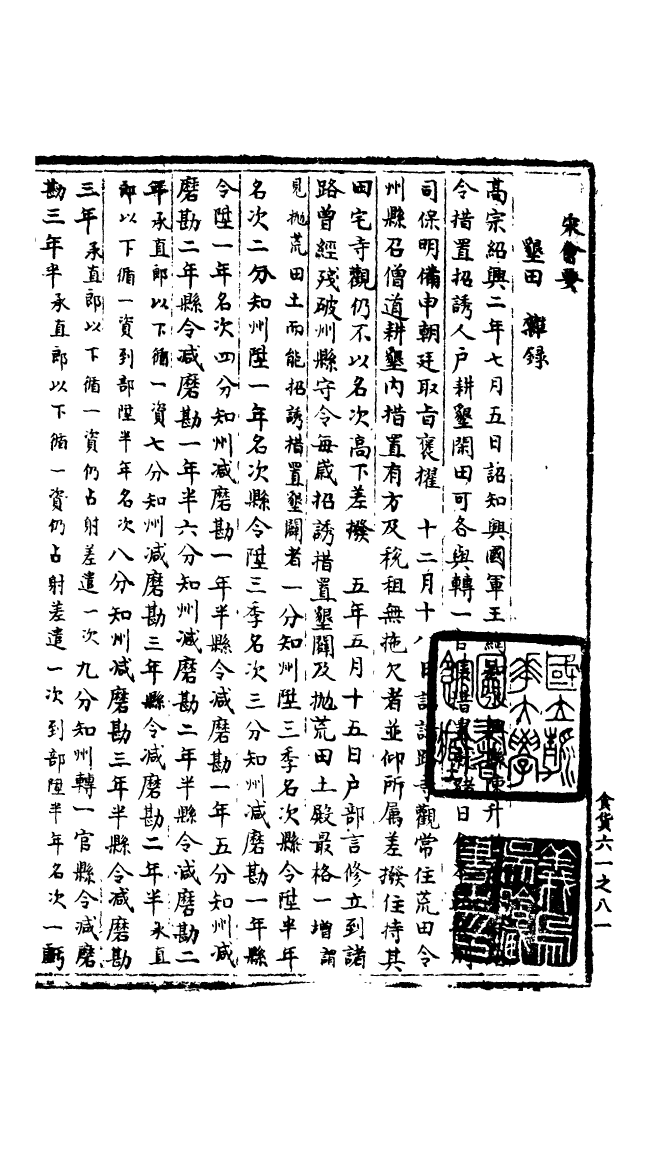 宋會要
墾田雜錄
高宗紹興二年七月五日詔知興國軍王
令措置招誘人户耕墾閑田可各與轉一官
司保明備申朝廷取旨褒擢 十二月十八日詔諸路寺觀常住荒田令
州縣召僧道耕墾内措置有方及稅租無拖欠者並仰所屬差撥住持其
田宅寺觀仍不以名次高下差撥 五年五月十五日户部言修立到諸
路曾經殘破州縣守令每歲招誘措置墾闢及抛荒田土殿最格一增謂
見抛荒田土而能招誘措置墾闢者一分知州陞三季名次縣令陞半年
名次二分知州陞一年名次縣令陞三季名次三分知州減磨勘一年縣
令陞一年名次四分知州減磨勘一年半縣令減磨勘一年五分知州減
磨勘二年縣令减磨勘一年半六分知州減磨勘二年半縣令減磨勘二
年承直郎以下循一資七分知州減磨勘三年縣令減磨勘二年半承直
郎以下循一資到部陞半年名次八分知州減磨勘三年半縣令減磨勘
三年承直郎以下循一資仍占射差遣一次九分知州轉一官縣令減磨
勘三年半承直郎以下循一資仍占射差遣一次到部陞半年名次一虧
食貨六一之八一